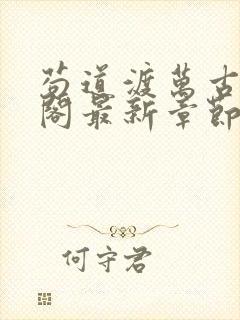 苟道渡萬古
閣最新章節
何守君